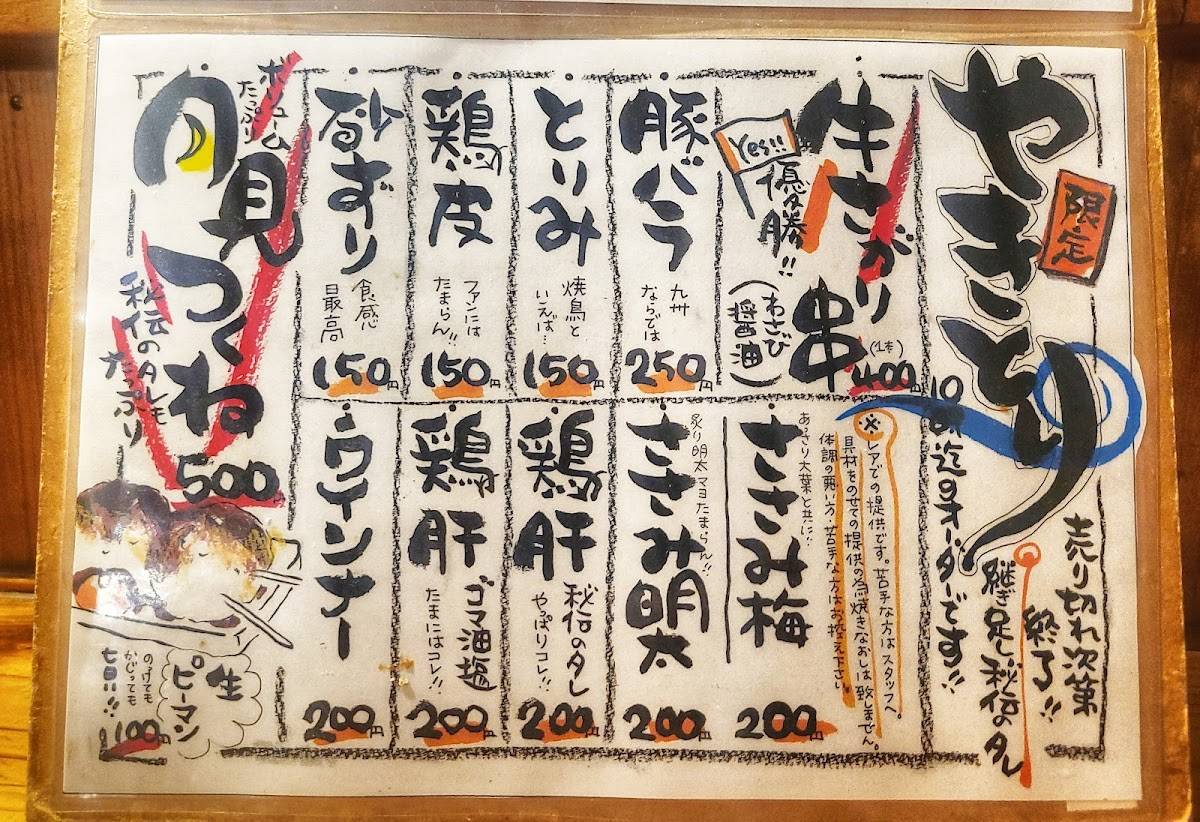 やきとり
限定
売り切れ次第
終了!!
継ぎ足し秘伝のタレ
迄のオーダーです!!
牛さがり串
(1本)
400円
Yes!!
優勝!!
(わさび醤油)
豚バラ
九州
ならでは
250円
とりみ
焼鳥と
いえば…
150円
鶏の皮
ファンには
たまらん!!
150円
砂ずり
食感
最高
150円
※レアでの提供です。苦手な方はスタッフへ。
具材をのせての提供の為焼きなおしは致しません。
体調の悪い方・苦手な方はお控え下さい
ささみ梅
あっさり大葉と共に!!
200円
ささみ明太
炙り明太マヨたまらん!!
200円
鶏の肝
秘伝のタレ
やっぱりコレ!!
200円
鶏の肝
ゴマ油塩
たまにはコレ!!
200円
ウインナー
200円
ボリューム
たっぷり
月見つくね
秘伝のタレも
たっぷり
500
生
ピーマン
のっけても
かじっても
100円